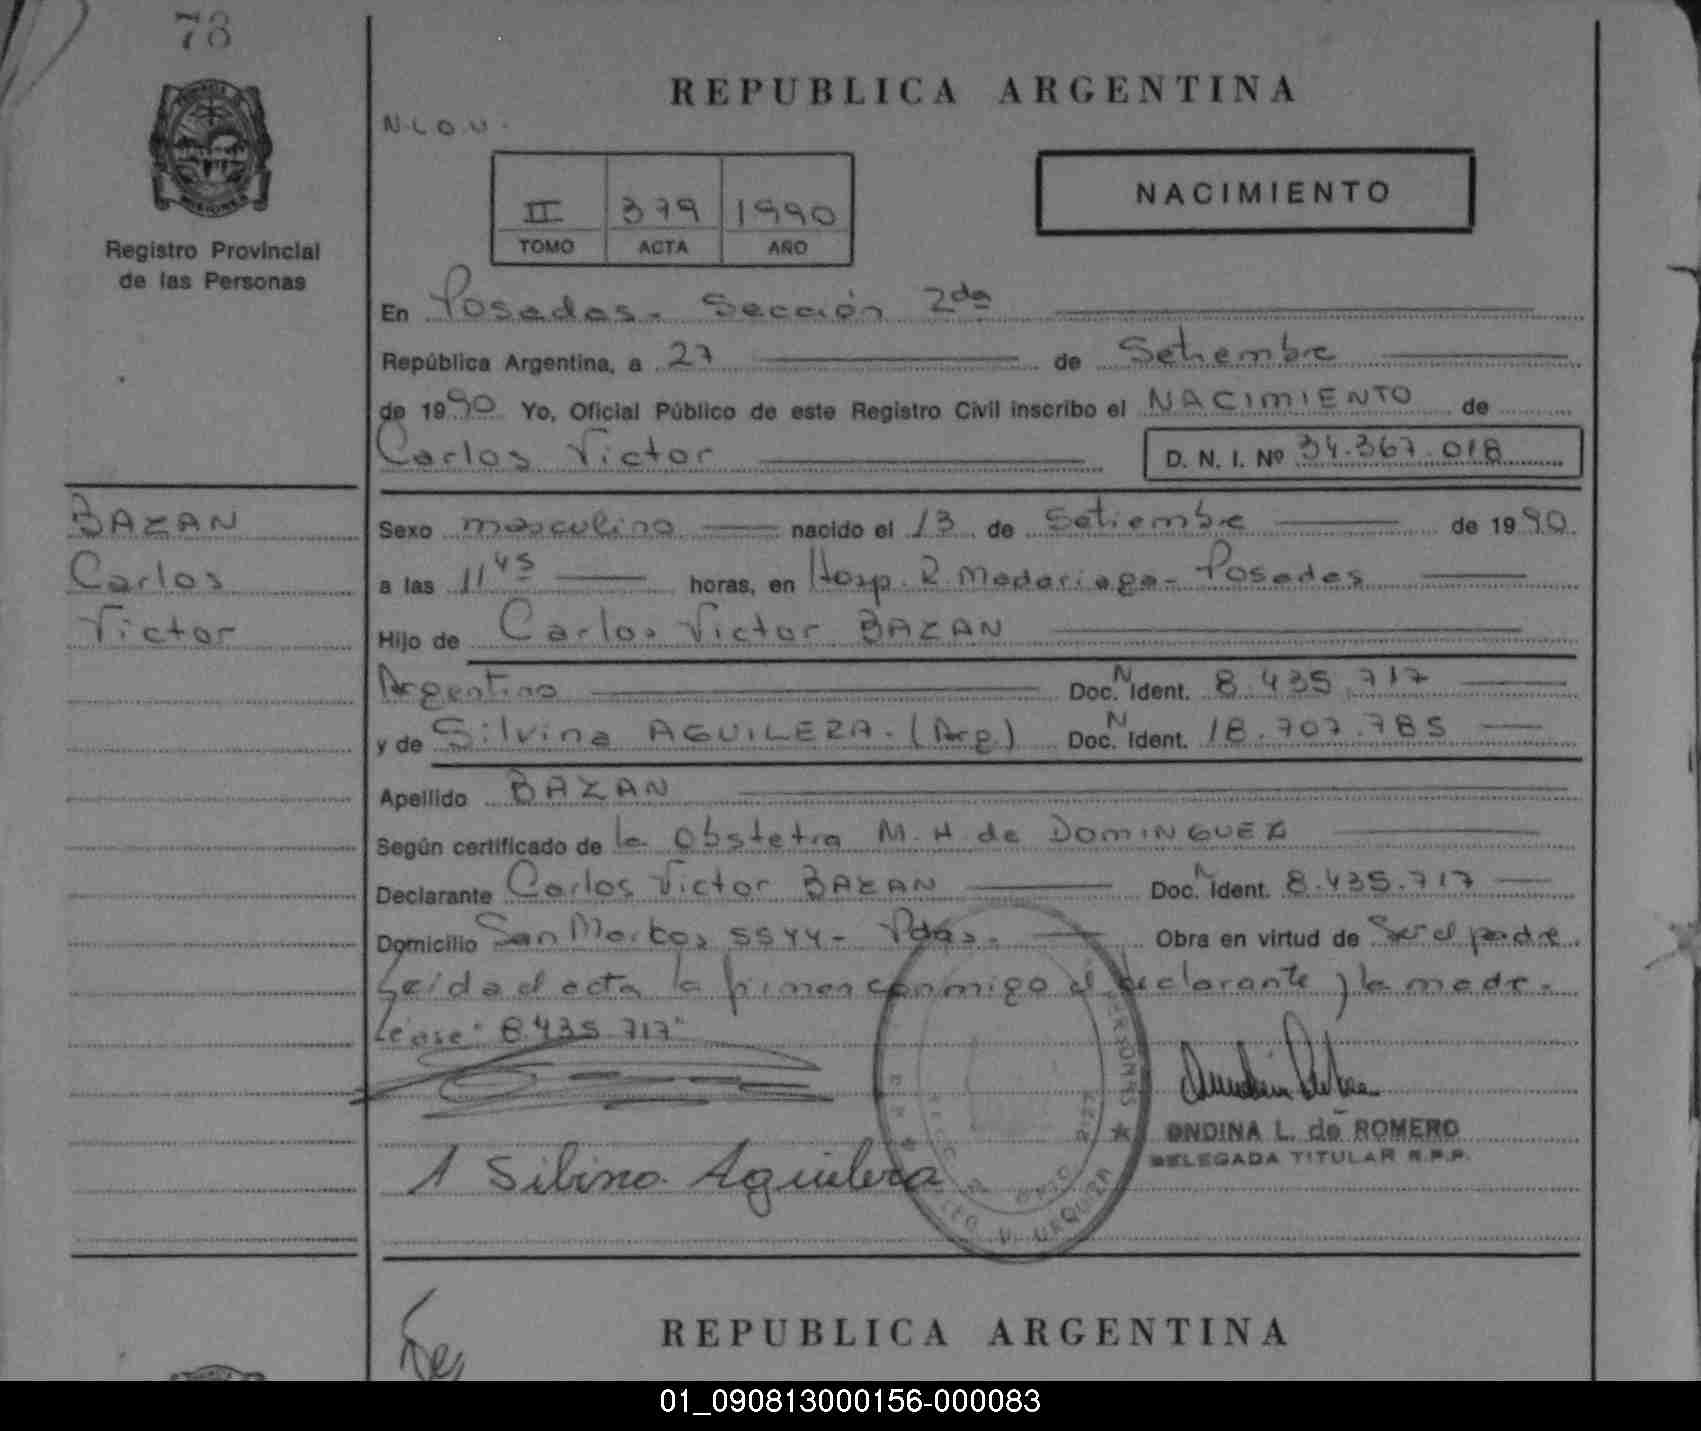 78
REPUBLICA ARGENTINA
N.L.O.U.
MISIONES
Registro Provincial
de las Personas
II 379 1990
TOMO ACTA AÑO
NACIMIENTO
En Posadas. Sección 2da
República Argentina, a 27 de Setiembre
de 1990 Yo, Oficial Público de este Registro Civil inscribo el NACIMIENTO de
Carlos Victor D. N. I. Nº 34.367.018
BAZAN
Carlos
Victor
Sexo masculino nacido el 13 de Setiembre de 1990.
a las 11 45 horas, en Hosp. R. Madariaga - Posadas
Hijo de Carlos Victor BAZAN
Argentino Doc. N Ident. 8.435.717
y de Silvina AGUILERA. (Arg) Doc. N Ident. 18.707.785
Apellido BAZAN
Según certificado de la Obstetra M. H. de DOMINGUEZ
Declarante Carlos Victor BAZAN Doc. N Ident. 8.435.717
Domicilio San Markos 5544 - Pdas. Obra en virtud de Ser el padre.
Leída el acta la firman conmigo el declarante y la madre.
Léase: "8.435.717"
Silvina Aguilera
ONDINA L. de ROMERO
DELEGADA TITULAR R.P.P.
URQUIZA
REPUBLICA ARGENTINA
01_090813000156-000083